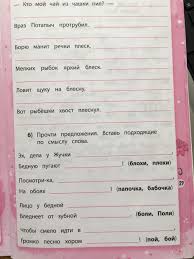 – Кто мой чай из чашки пил? –
Враз Потапыч протрубил.
Борю манит речки плеск.
Мелких рыбок яркий блеск.
Ловит щуку на блесну.
Вот рыбёшки хвост плеснул.
б) Прочти предложения. Вставь подходящие
по смыслу слова.
Эх, дела у Жучки
Бедную пугают ! (блохи, плохи)
Посмотри-ка,
На обоях ! (папочка, бабочка)
Лицо у бедной
Бледнеет от зубной ! (боли, Поли)
Чтобы смело идти в ,
Громко песню хором ! (пой, бой)